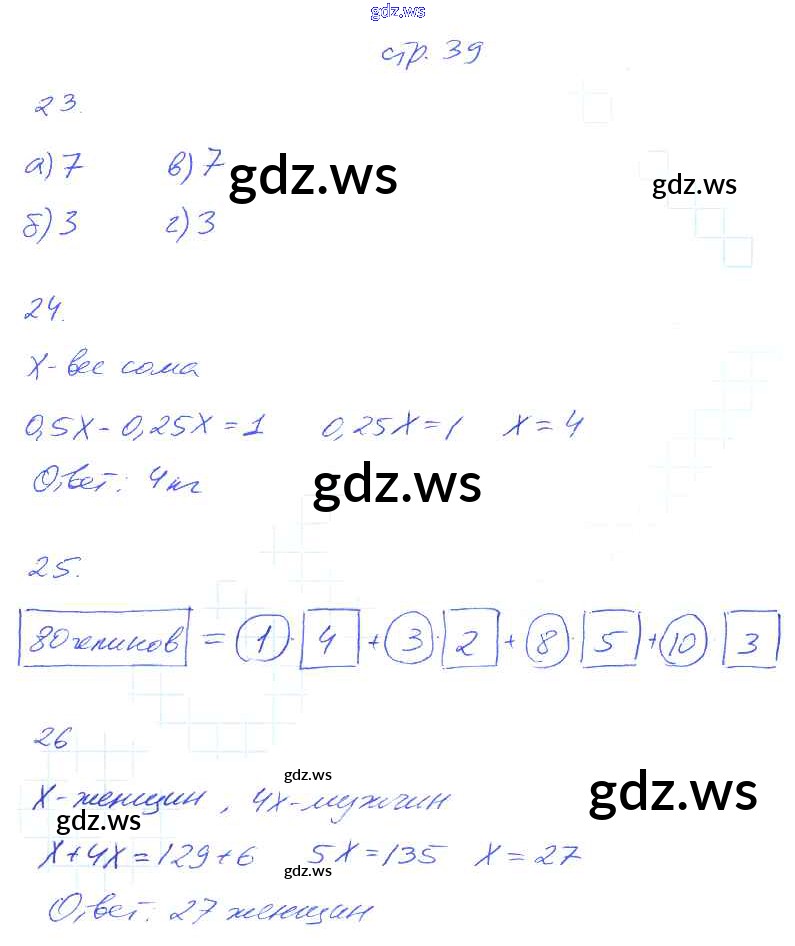 gdz.ws
стр. 39
23.
а) 7 в) 7
gdz.ws
gdz.ws
б) 3 г) 3
24.
X - вес сома
0,5X - 0,25X = 1 0,25X = 1 X = 4
Ответ: 4 кг
gdz.ws
25.
80 чел = 1 · 4 + 3 · 2 + 8 · 5 + 10 3
26
gdz.ws
X - женщин, 4X - мужчин
gdz.ws
gdz.ws
X + 4X = 129 + 6 5X = 135 X = 27
gdz.ws
Ответ: 27 женщин